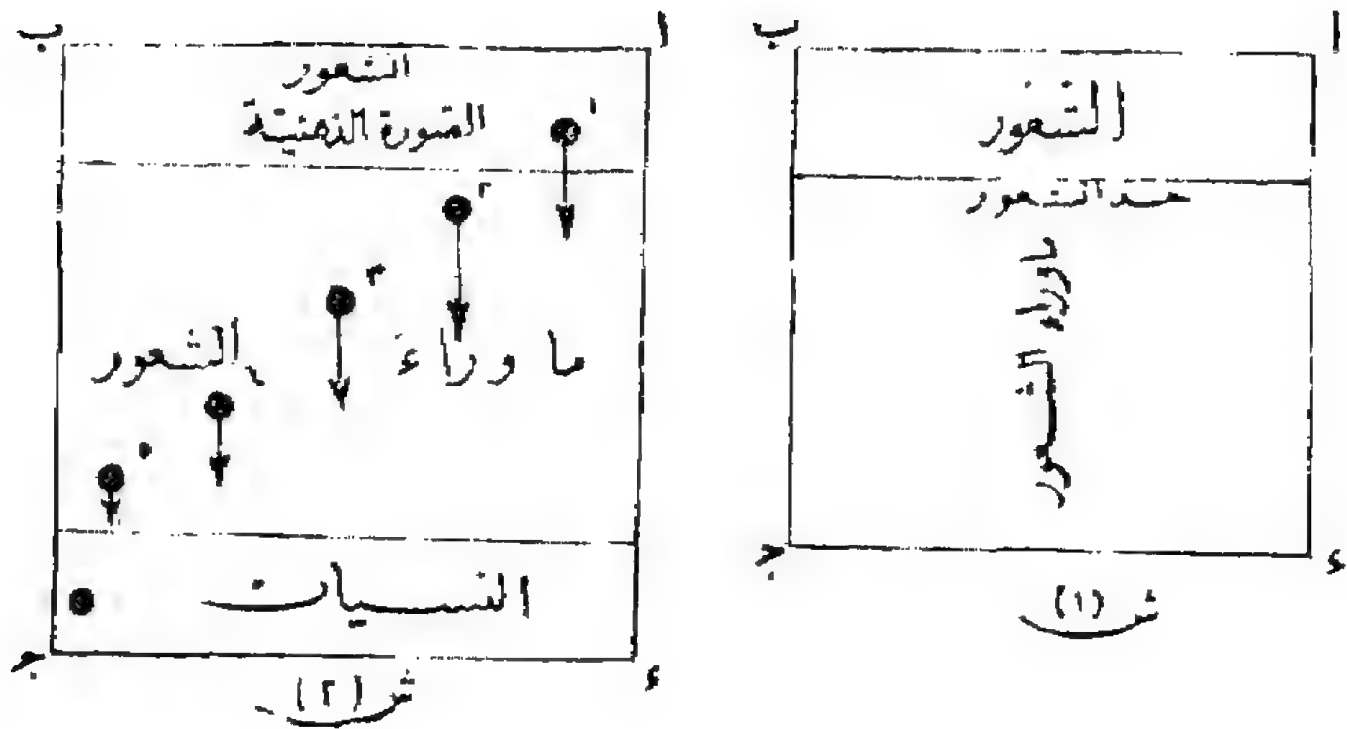 ا
ب
الشعور
حد الشعور
ما وراء الشعور
ج
ء
ش (١)
ا
ب
الشعور
الصورة الذهنية
١
٢
٣
ما وراء الشعور
٥
النسيان
ج
ء
ش (٢)